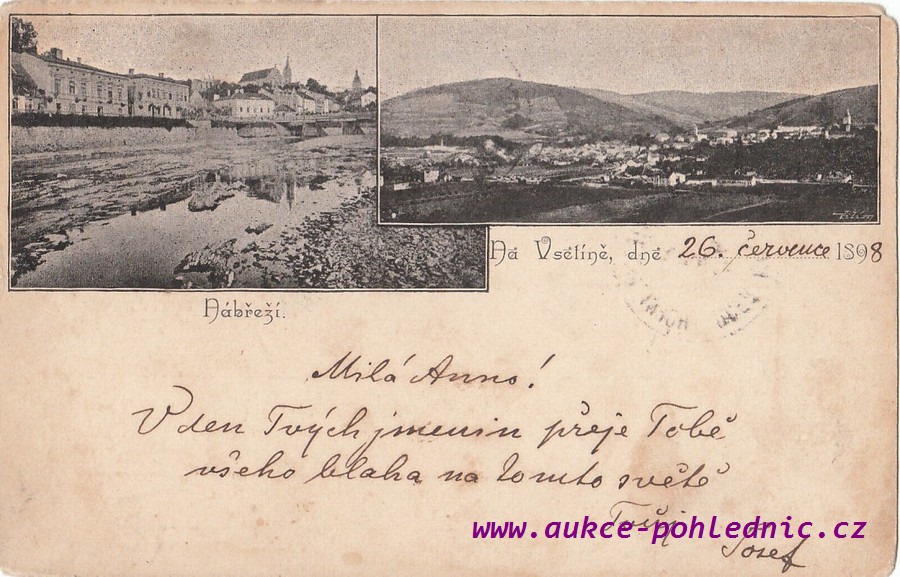 Na Vsetíně, dne 26. července 1898
Nábřeží.
Milá Anno!
V den Tvých jmenin přeje Tobě
všeho blaha na tomto světě
Tvůj
www.aukce-pohlednic.cz
Josef